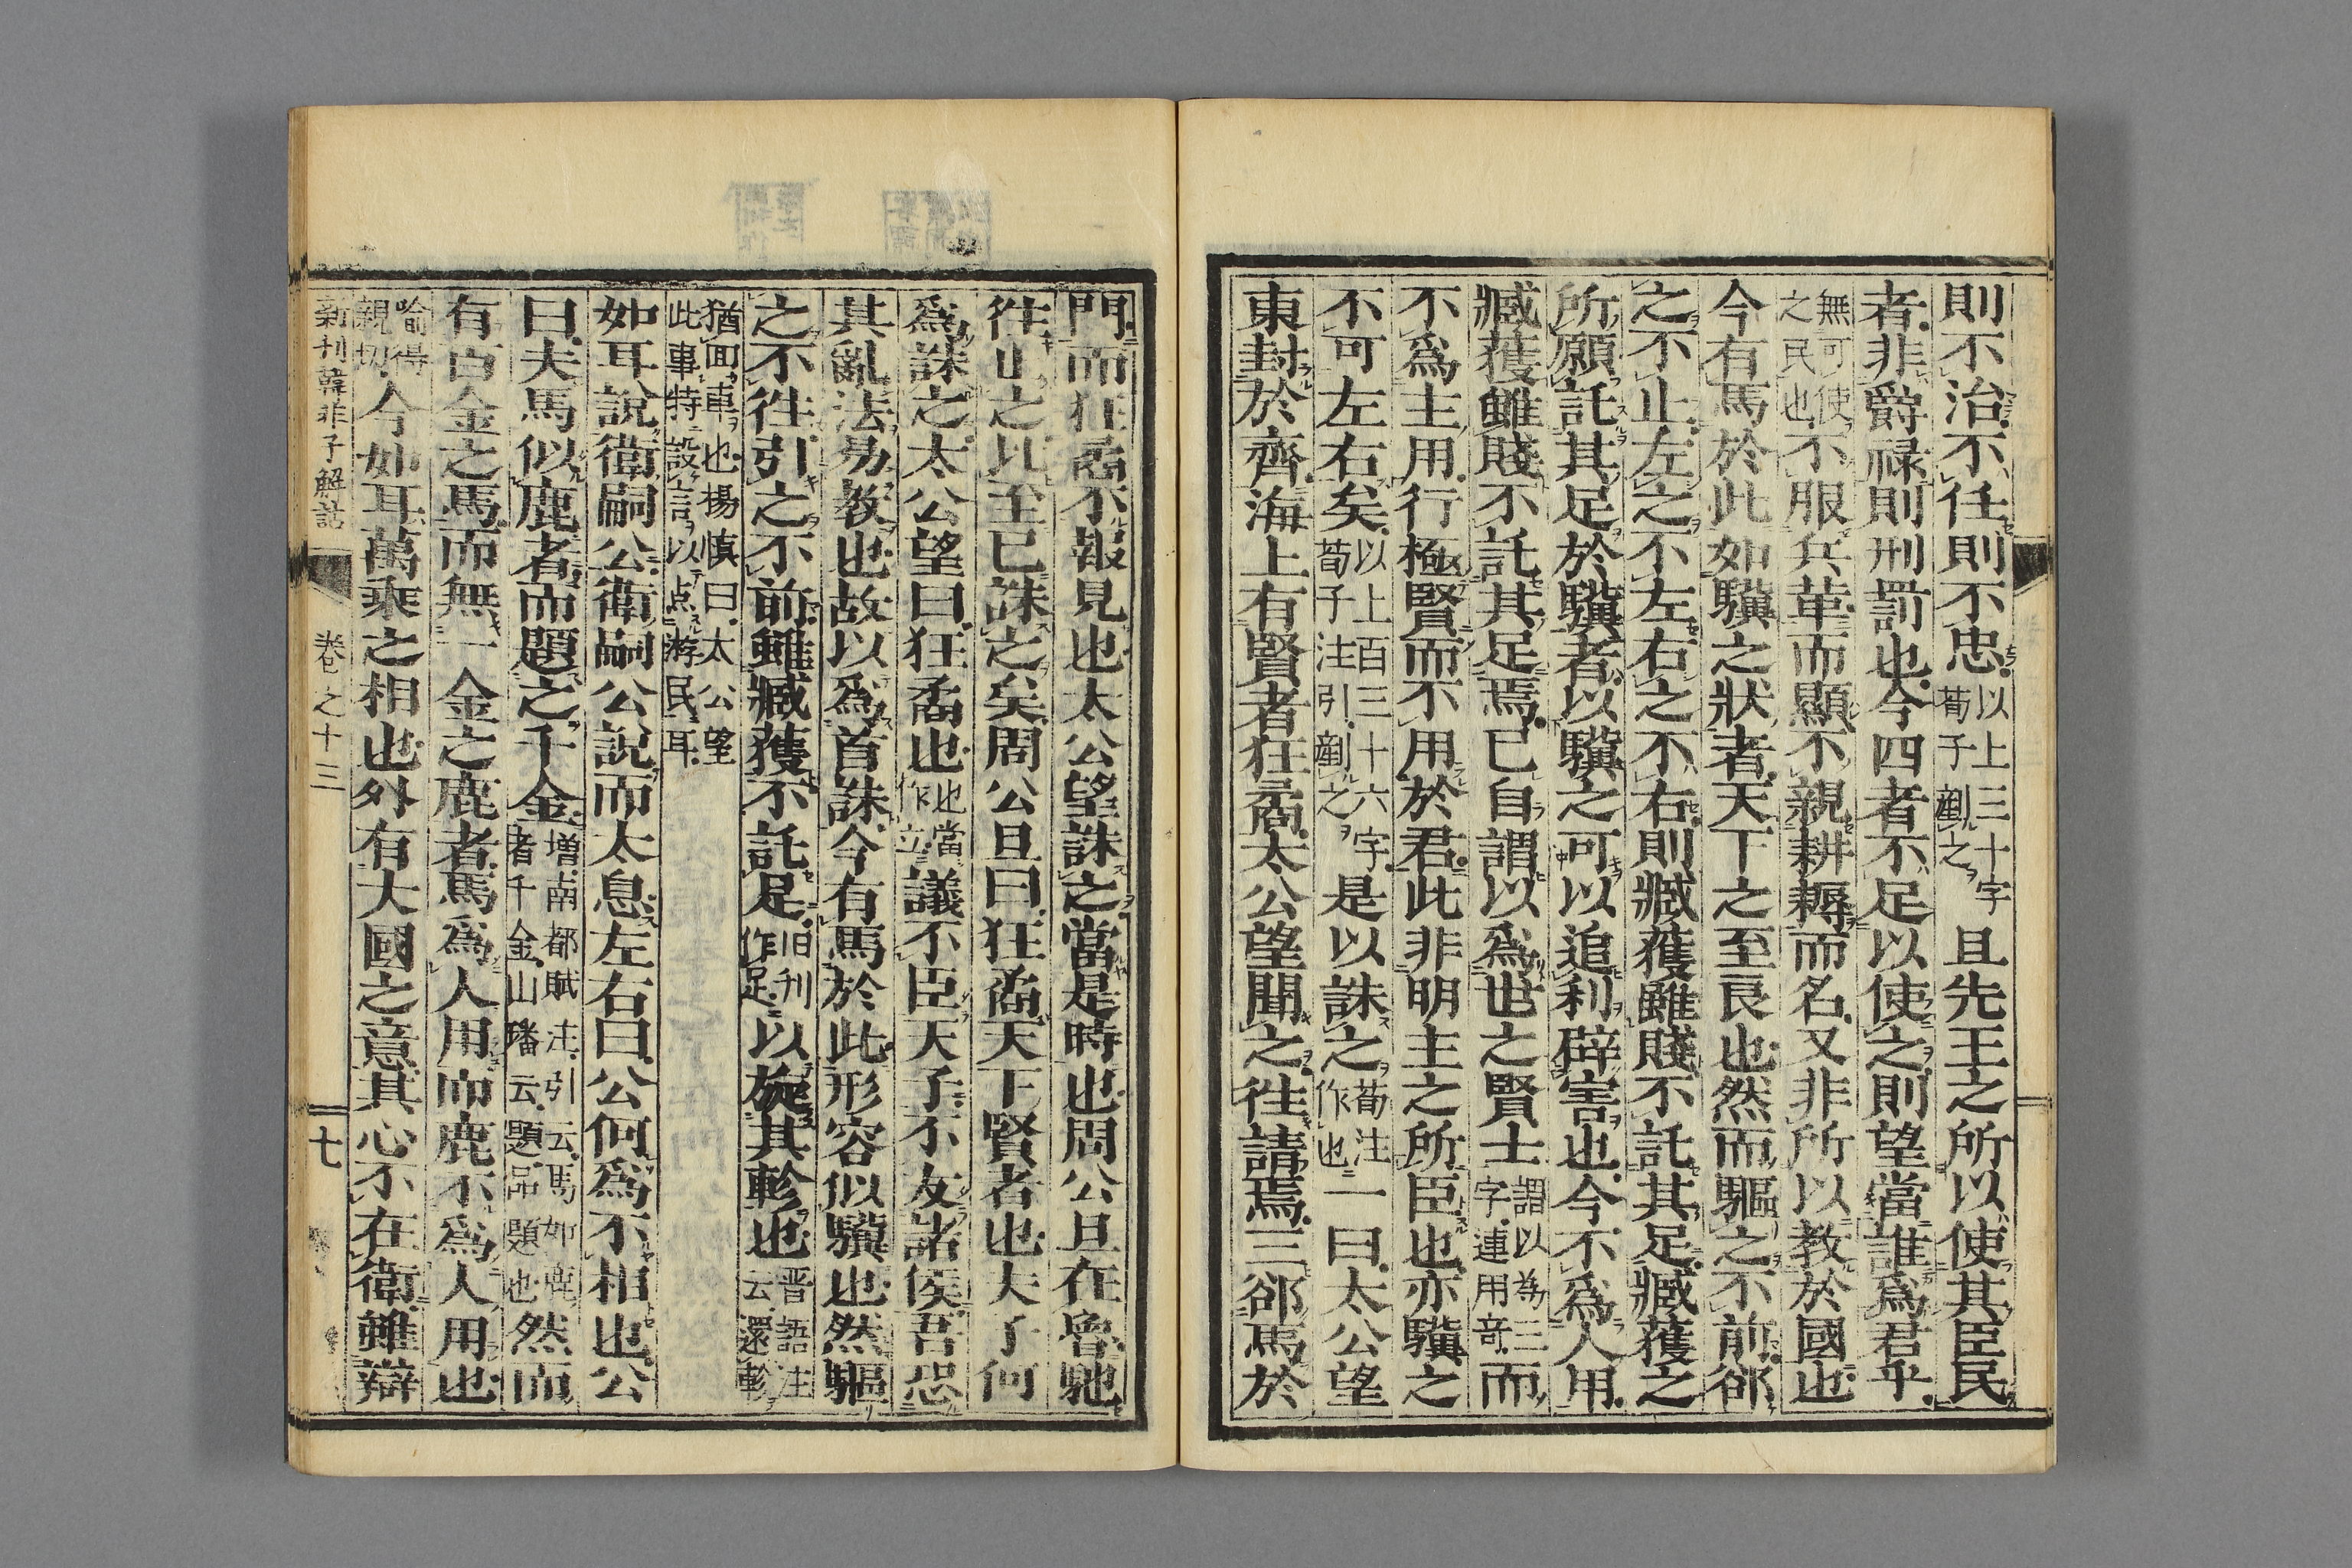 則不治不任則不忠以上三十字荀子劃之且先王之所以使其臣民
者非爵禄則刑罰也今四者不足以使之則望當誰爲君乎
無可使之民也不服兵革而顯不親耕耨而名又非所以教於國也
今有馬於此如驥之狀者天下之至良也然而驅之不前郤
之不止左之不左右之不右則臧獲雖賤不託其足臧獲之
所願託其足於驥者以驥之可以追利辟害也今不爲人用
臧獲雖賤不託其足焉已自謂以爲世之賢士謂以為三字連用奇而
不爲主用行極賢而不用於君此非明主之所臣也亦驥之
不可左右矣以上百三十六字荀子注引劃之是以誅之荀注作也一曰太公望
東封於齊海上有賢者狂矞太公望聞之徃請焉三郤馬於
門而狂矞不報見也太公望誅之當是時也周公旦在魯馳
徃止之比至已誅之矣周公旦曰狂矞天下賢者也夫子何
爲誅之太公望曰狂矞也也當作立議不臣天子不友諸侯吾恐
其亂法易教也故以爲首誅今有馬於此形容似驥也然驅
之不徃引之不前雖臧獲不託足旧刊作足以旋其軫也晋語注云還軫
猶回車也楊慎曰太公望此事特設言以点游民耳
如耳說衛嗣公衛嗣公說而太息左右曰公何爲不相也公
曰夫馬似鹿者而題之千金増南都賦注引云馬如鹿者千金山璠云題品題也然而
有百金之馬而無一金之鹿者馬爲人用而鹿不爲人用也
喻得親切今如耳萬乘之相也外有大國之意其心不在衛雖辯
新刊韓非子解詁 卷之十三 七